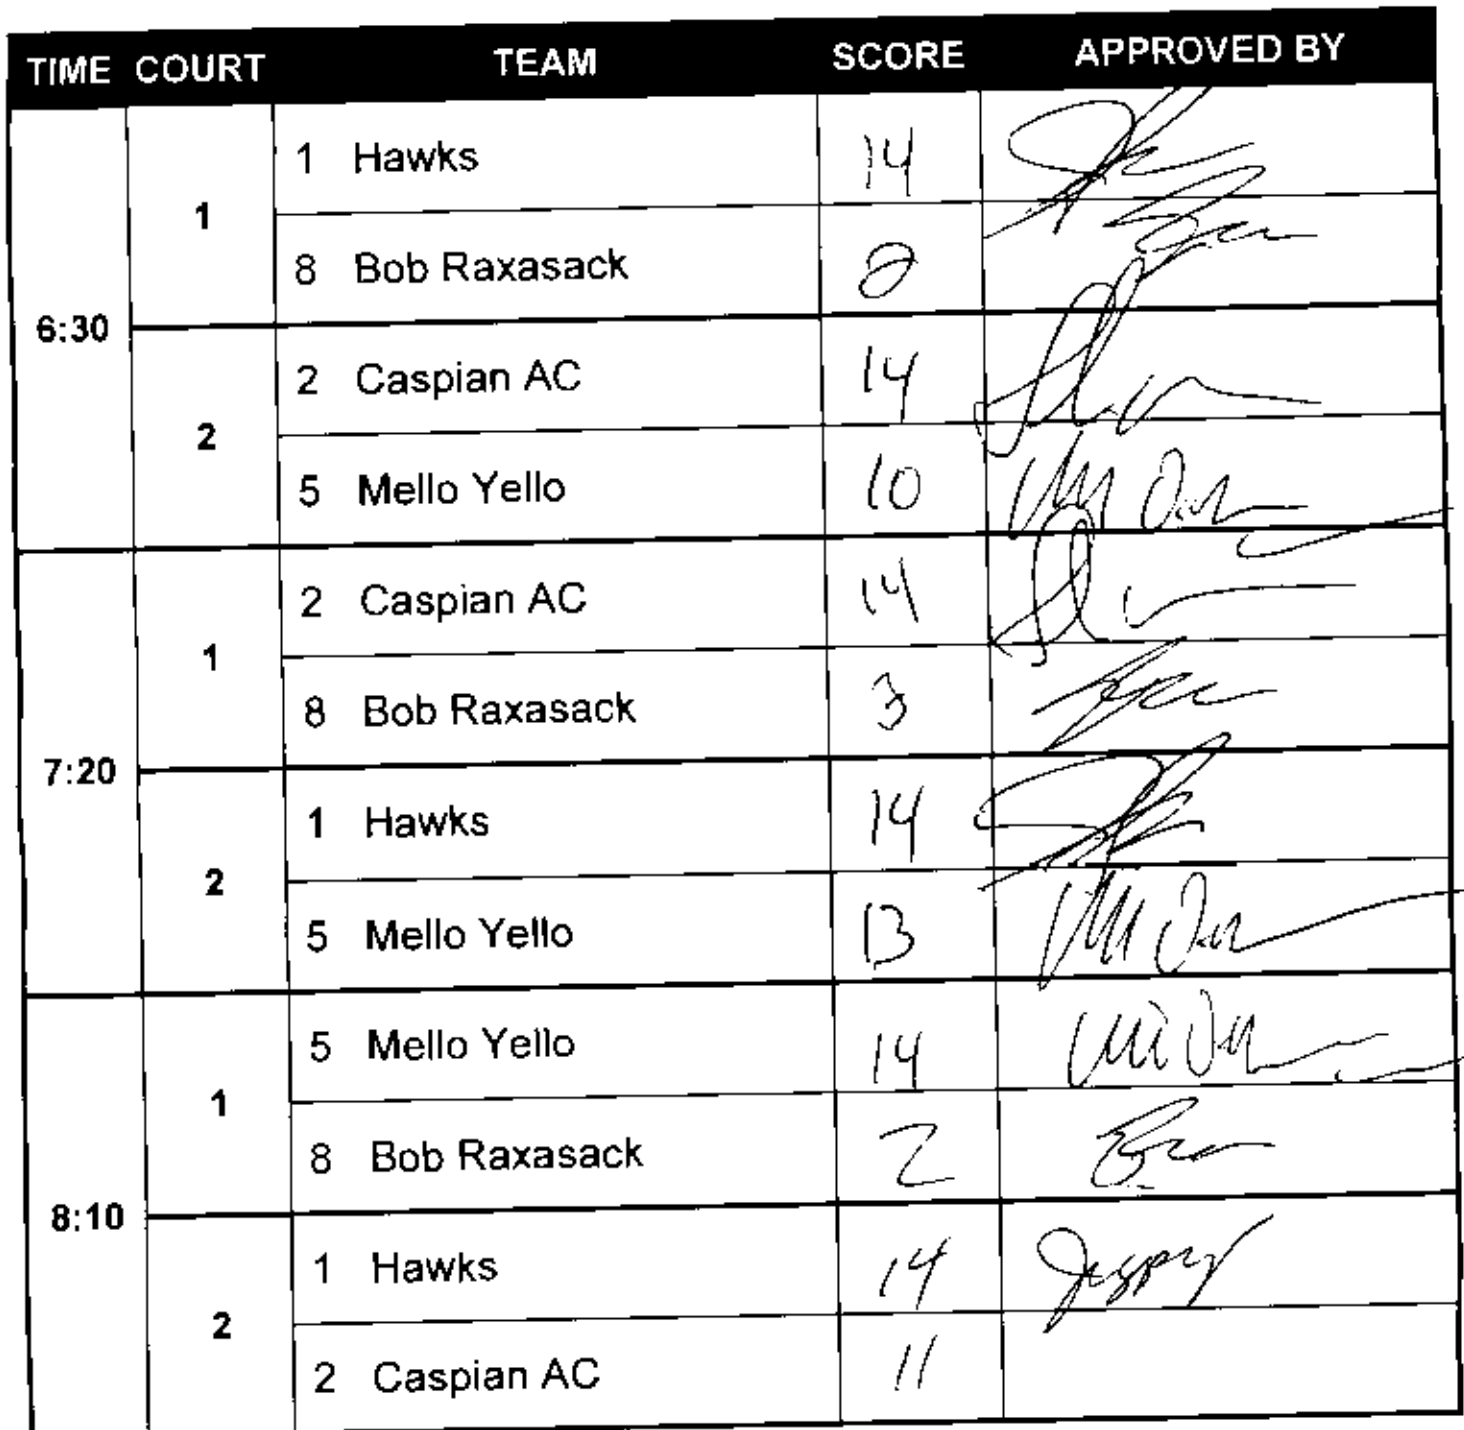 TIME COURT TEAM SCORE APPROVED BY
6:30
1
1 Hawks 14
8 Bob Raxasack 2
2
2 Caspian AC 14
5 Mello Yello 10
7:20
1
2 Caspian AC 14
8 Bob Raxasack 3
2
1 Hawks 14
5 Mello Yello 13
8:10
1
5 Mello Yello 14
8 Bob Raxasack 2
2
1 Hawks 14
2 Caspian AC 11